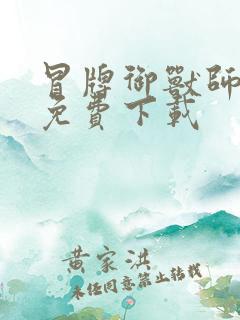 冒牌御獸師
免費下載
黄家洪
未经同意禁止转载